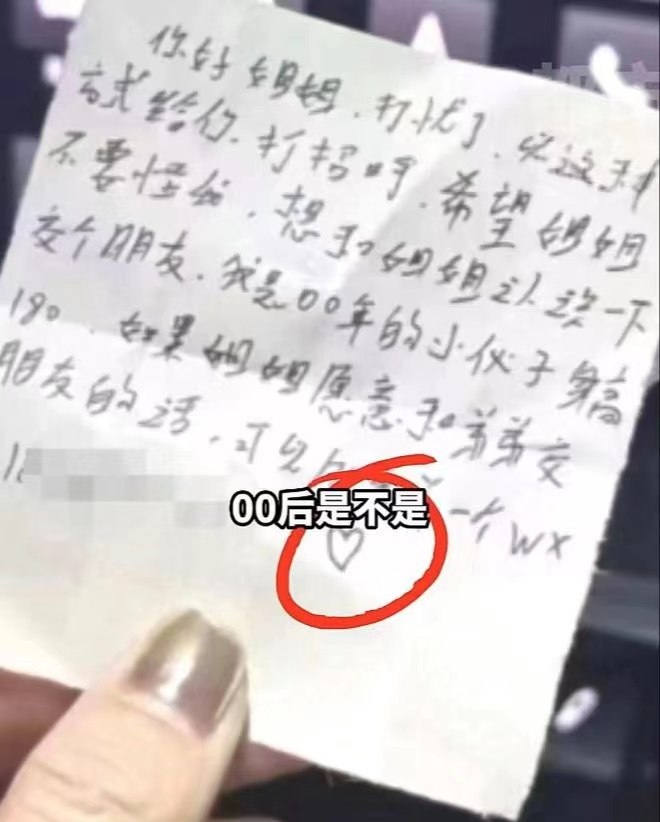 你好姐姐,打扰了,以这种
方式给你打招呼,希望姐姐
不要怪我,想和姐姐认识一下
交个朋友,我是00年的小伙子身高
190,如果姐姐愿意和弟弟交
朋友的话,可以
一个wx
1
00后是不是